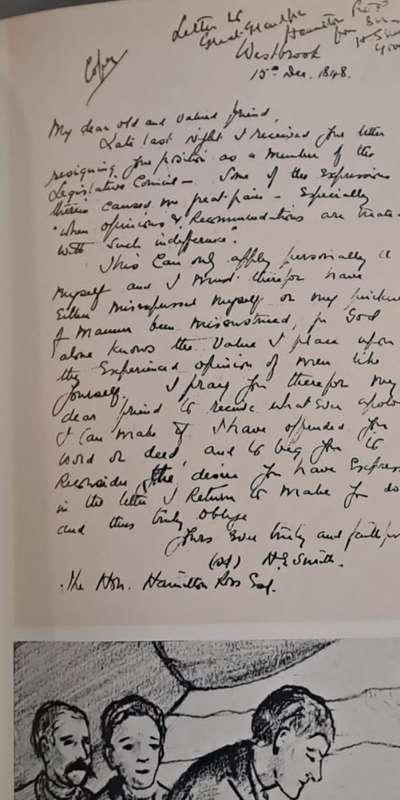 Copy
Letter to
Great-Grandpa
Hamilton Ross
from
Westbrook
15th Dec. 1848.
My dear old and valued friend,
Late last night I received your letter
resigning your position as a member of the
Legislative Council – Some of the expressions
therein caused me great pain – Especially
"when opinions & Recommendations are treate
with such indifference".
This can only apply personally to
myself and I must therefor have
Either misexpressed myself or my
of manner been misconstrued, for God
alone knows the value I place upon
the Experienced opinion of men like
yourself. I pray you therefor my
dear friend to receive whatever apolo
I can make if I have offended you
word or deed and to beg you to
Reconsider the desire you have Express
in the letter I Return to make you do
and thus truly oblige
Yours Ever truly and faithfu
(Sd) H.G. Smith.
The Hon. Hamilton Ross Esq.